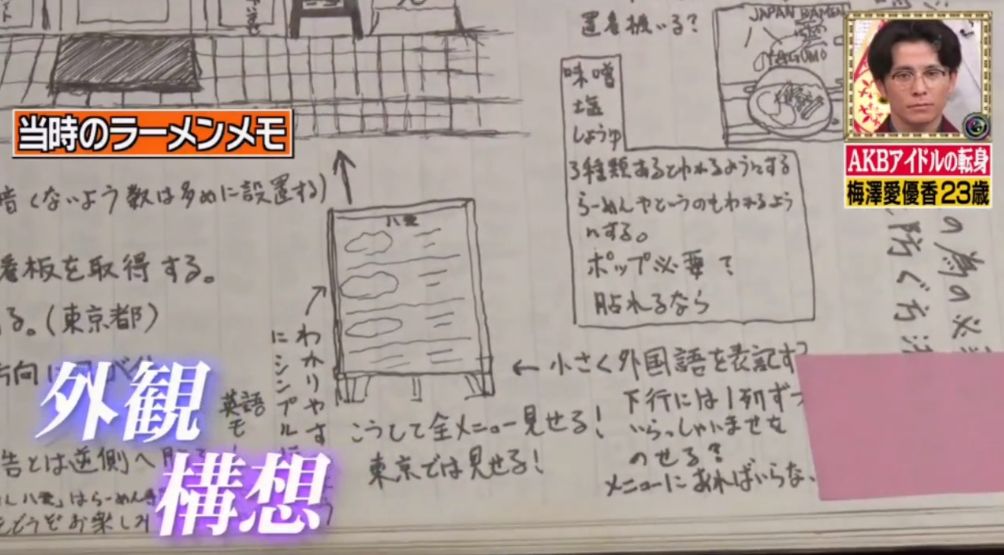 置看板いる?
JAPAN RAMEN
YAGUMO
味噌
塩
しょうゆ
3種類あるとわかるようにする
らーめんやというのもわかるよう
にする。
ポップ必要?
貼れるなら
当時のラーメンメモ
AKBアイドルの転身
梅澤愛優香23歳
くないよう数は多めに設置する)
看板を取得する。
る。(東京都)
八雲
わかりやす
にシンプル
英語
モ
こうして全メニュー見せる!
東京では見せる!
←小さく外国語を表記す
下行には1列ずつ
いらっしゃいませを
のせる?
メニューにあればいらな
の為の必
防ぐ方法
告とは逆側へ
八雲」はらーめん
どうぞお楽しみ
外観
構想